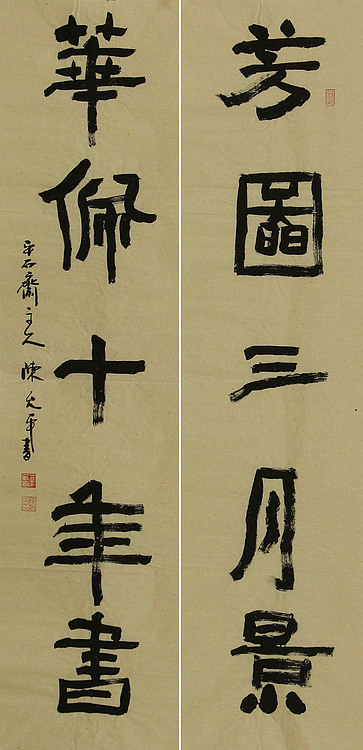 芳圖三月景
華佩十年書
石齋主人 陳允平書